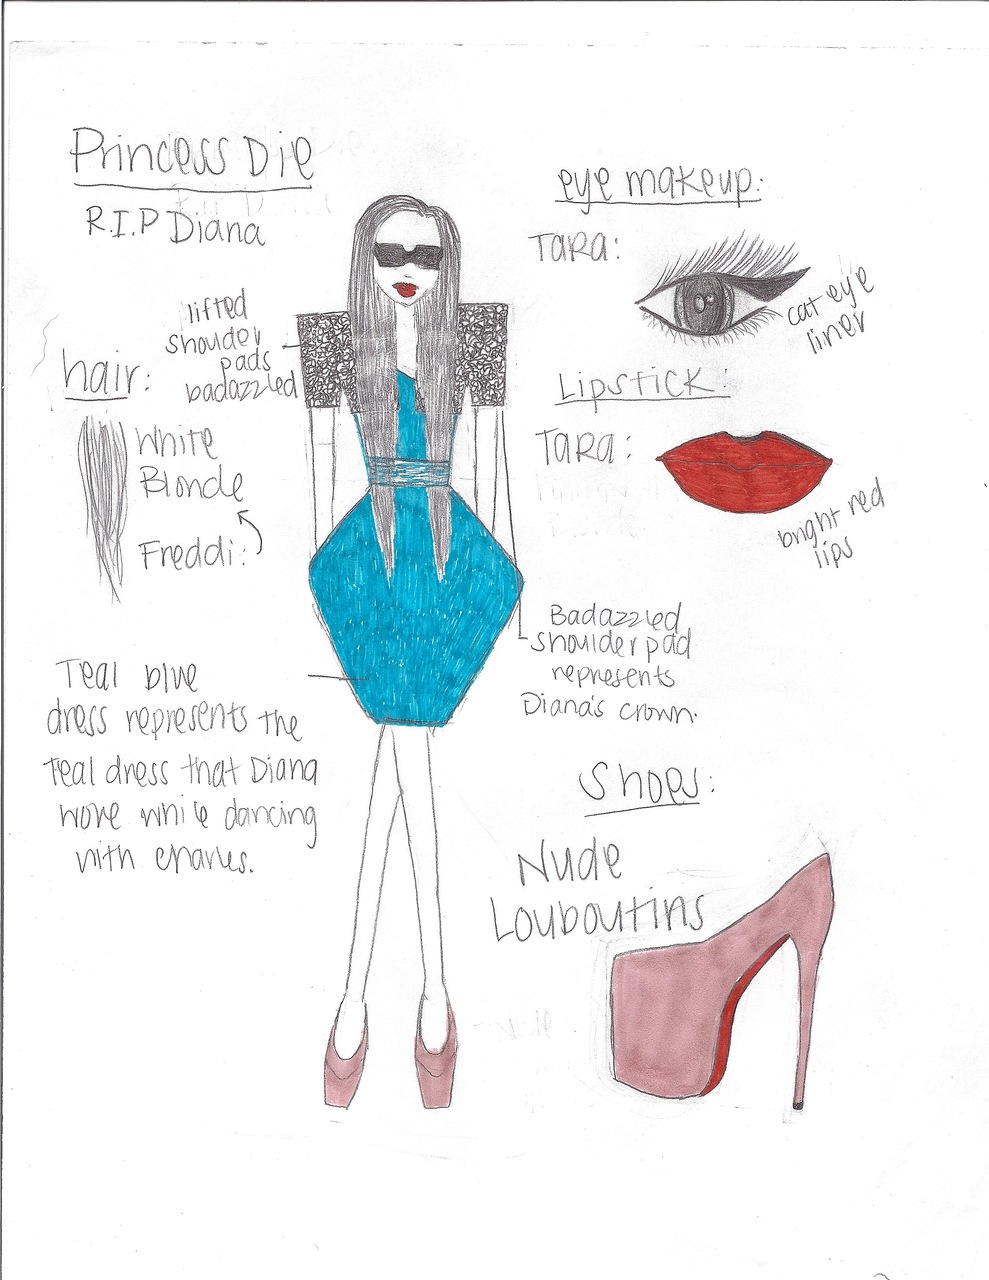 Princess Die
R.I.P Diana
lifted
shouder
pads
badazzled
hair:
White
Blonde
Freddi:
Teal blue
dress represents the
Teal dress that Diana
wore while dancing
with Charles.
eye makeup:
TARA:
cat eye
liner
Lipstick:
TARA:
bright red
lips
Badazzled
shoulder pad
represents
Diana's crown.
Shoes:
Nude
Louboutins